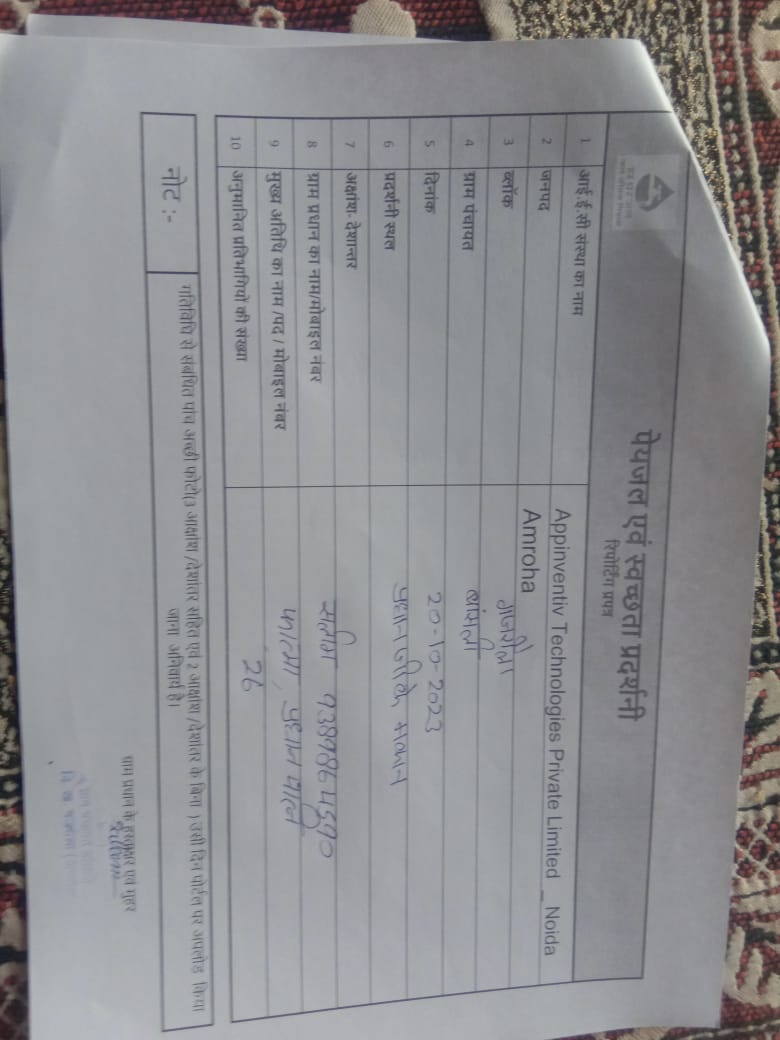 पेयजल एवं स्वच्छता प्रदर्शनी
रिपोर्टिंग प्रपत्र
1 आई.ई.सी संस्था का नाम Appinventiv Technologies Private Limited _ Noida
2 जनपद Amroha
3 ब्लॉक गजरौला
4 ग्राम पंचायत
5 दिनांक 20-10-2023
6 प्रदर्शनी स्थल प्रधान जी के मकान
7 अक्षांश- देशान्तर
8 ग्राम प्रधान का नाम/मोबाइल नंबर
9 मुख्य अतिथि का नाम /पद / मोबाइल नंबर
10 अनुमानित प्रतिभागियो की संख्या 26
नोट :- गतिविधि से संबंधित पांच अच्छी फोटो(3 आक्षांश /देशांतर सहित एवं 2 आक्षांश /देशांतर के बिना ) उसी दिन पोर्टल पर अपलोड किया
जाना अनिवार्य है।
ग्राम प्रधान के हस्ताक्षर एवं मुहर